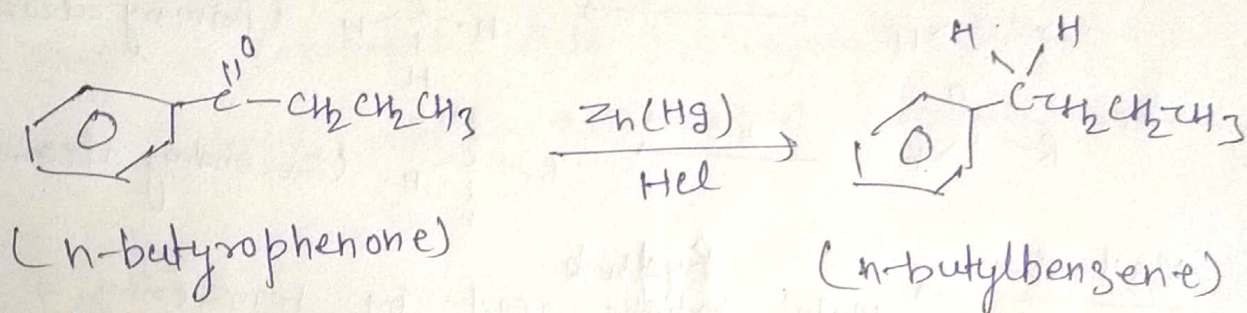 O
C-CH₂CH₂CH₃
Zn(Hg)
HCl
H H
C-CH₂CH₂-CH₃
(n-butyrophenone)
(n-butylbenzene)